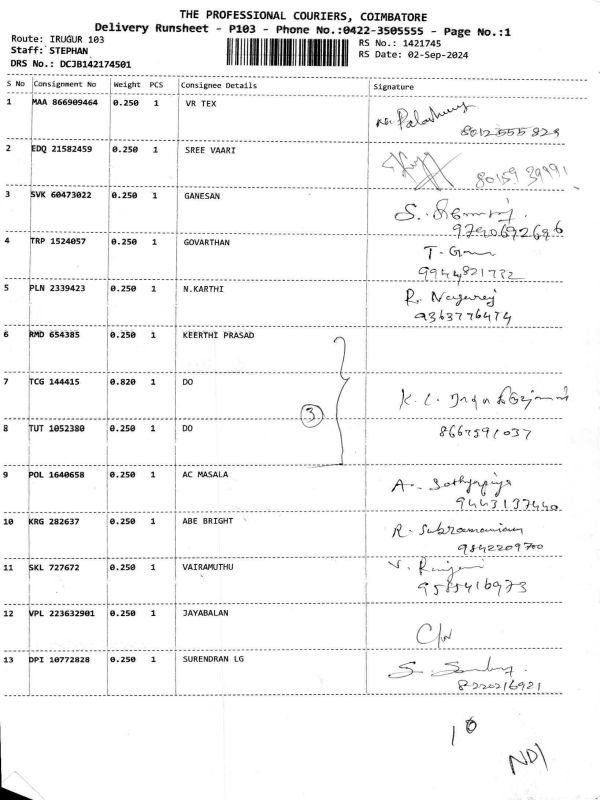 THE PROFESSIONAL COURIERS, COIMBATORE
Delivery Runsheet - P103 - Phone No.:0422-3505555 - Page No.:1
Route: IRUGUR 103
RS No.: 1421745
Staff: STEPHAN
RS Date: 02-Sep-2024
DRS No.: DCJB142174501
S No Consignment No Weight PCS Consignee Details Signature
1 MAA 866909464 0.250 1 VR TEX
8012555829
2 EDQ 21582459 0.250 1 SREE VAARI
80159 39991
3 SVK 60473022 0.250 1 GANESAN
9790692696
4 TRP 1524057 0.250 1 GOVARTHAN
9944821732
5 PLN 2339423 0.250 1 N.KARTHI R. Nagaraj
9363776474
6 RMD 654385 0.250 1 KEERTHI PRASAD
7 TCG 144415 0.820 1 DO
3
8 TUT 1052380 0.250 1 DO 8667591037
9 POL 1640658 0.250 1 AC MASALA A. Sathyapriya
9443137440
10 KRG 282637 0.250 1 ABE BRIGHT R. Subramaniam
9842209700
11 SKL 727672 0.250 1 VAIRAMUTHU
9585416973
12 VPL 223632901 0.250 1 JAYABALAN
13 DPI 10772828 0.250 1 SURENDRAN LG
8220216921